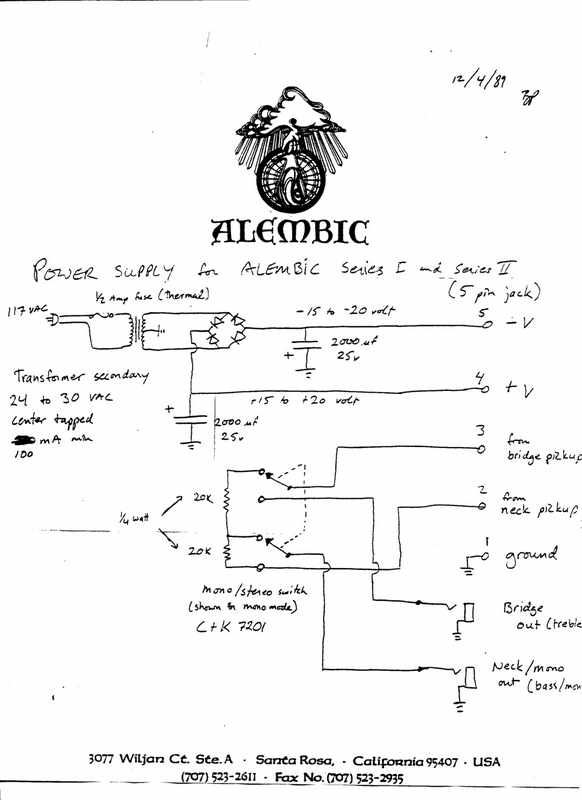 12/4/89
ALEMBIC
POWER SUPPLY for ALEMBIC Series I and Series II
(5 pin jack)
1/2 Amp fuse (thermal)
117 VAC
-15 to -20 volt
5
-V
+
2000 uf
25v
Transformer secondary
24 to 30 VAC
center tapped
mA min
100
4
+V
+15 to +20 volt
+
2000 uf
25v
3
from
bridge pickup
2
from
neck pickup
20K
1/4 watt
20K
1
ground
mono/stereo switch
(shown in mono mode)
C+K 7201
Bridge
out (treble
Neck/mono
out (bass/mon
3077 Wiljan Ct. Ste. A · Santa Rosa, · California 95407 · USA
(707) 523-2611 · Fax No. (707) 523-2935